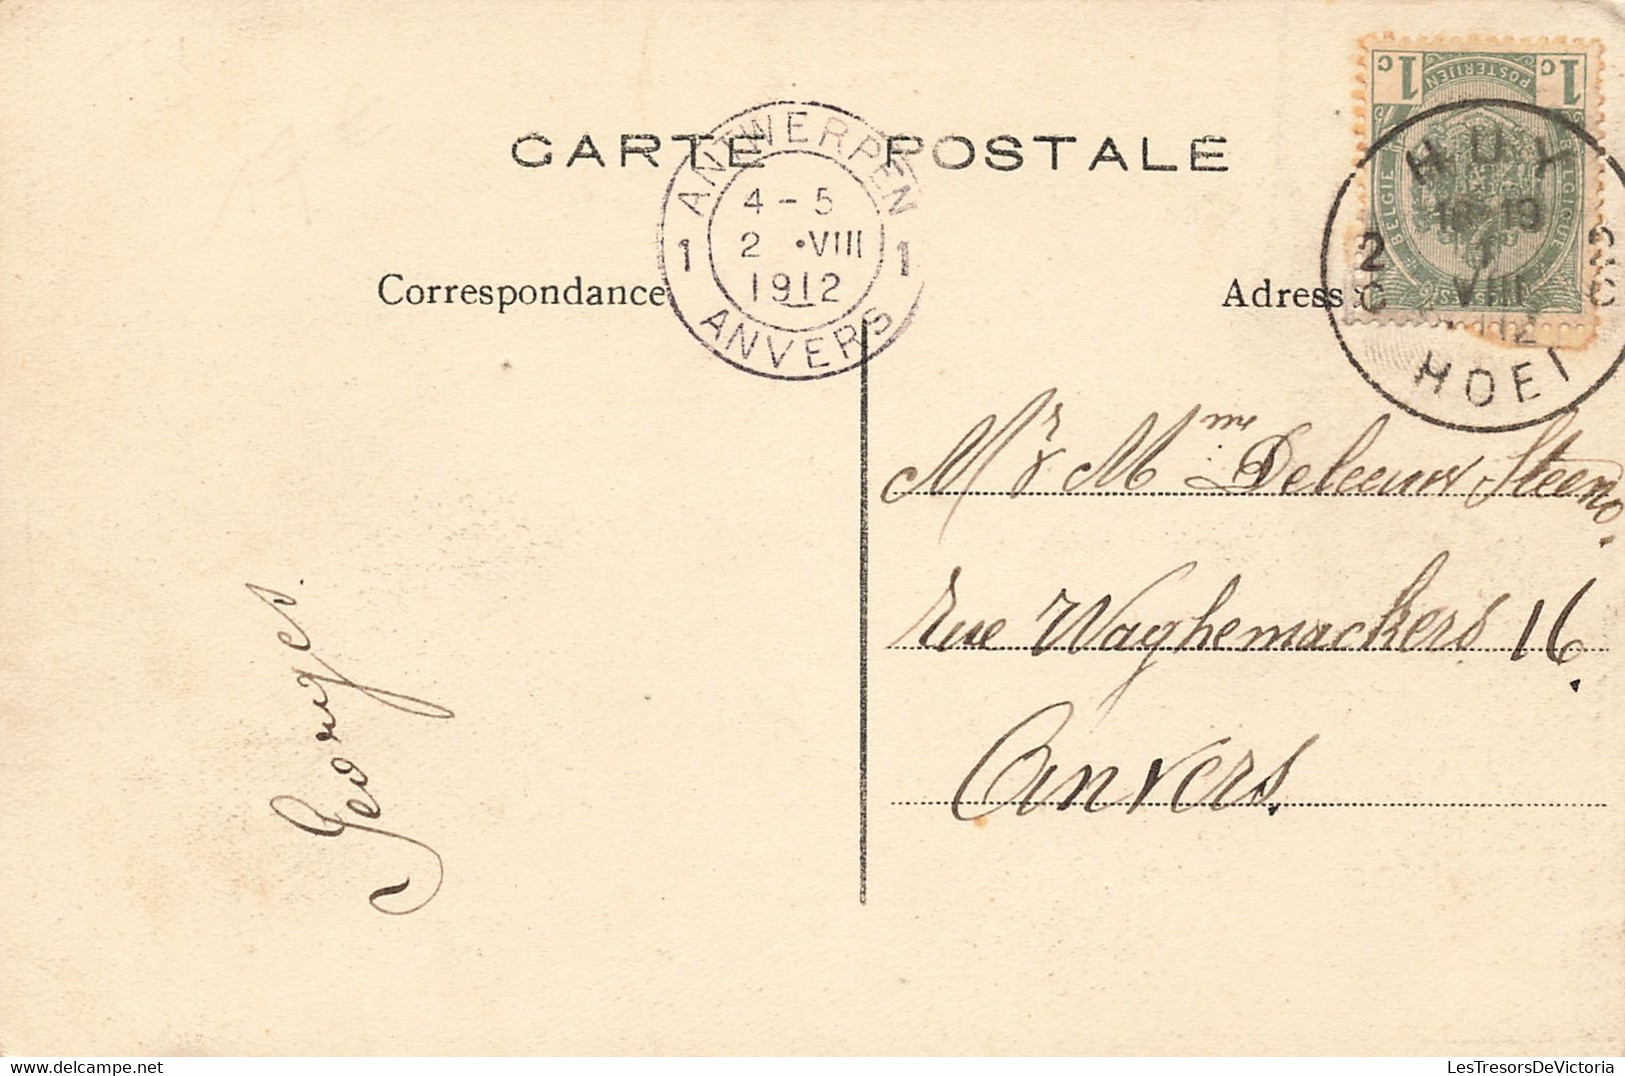 CARTE POSTALE
ANTWERPEN
4 - 5
2 • VIII
1912
1 1
ANVERS
1c 1c
POSTERIJEN
BELGIE BELGIQUE
HUY
2C 2C
VIII
12
HOEI
Correspondance
Adresse
Mr & Mme Deleeuw Steeno.
rue Waghemackers 16.
Anvers.
Georges.
LesTresorsDeVictoria